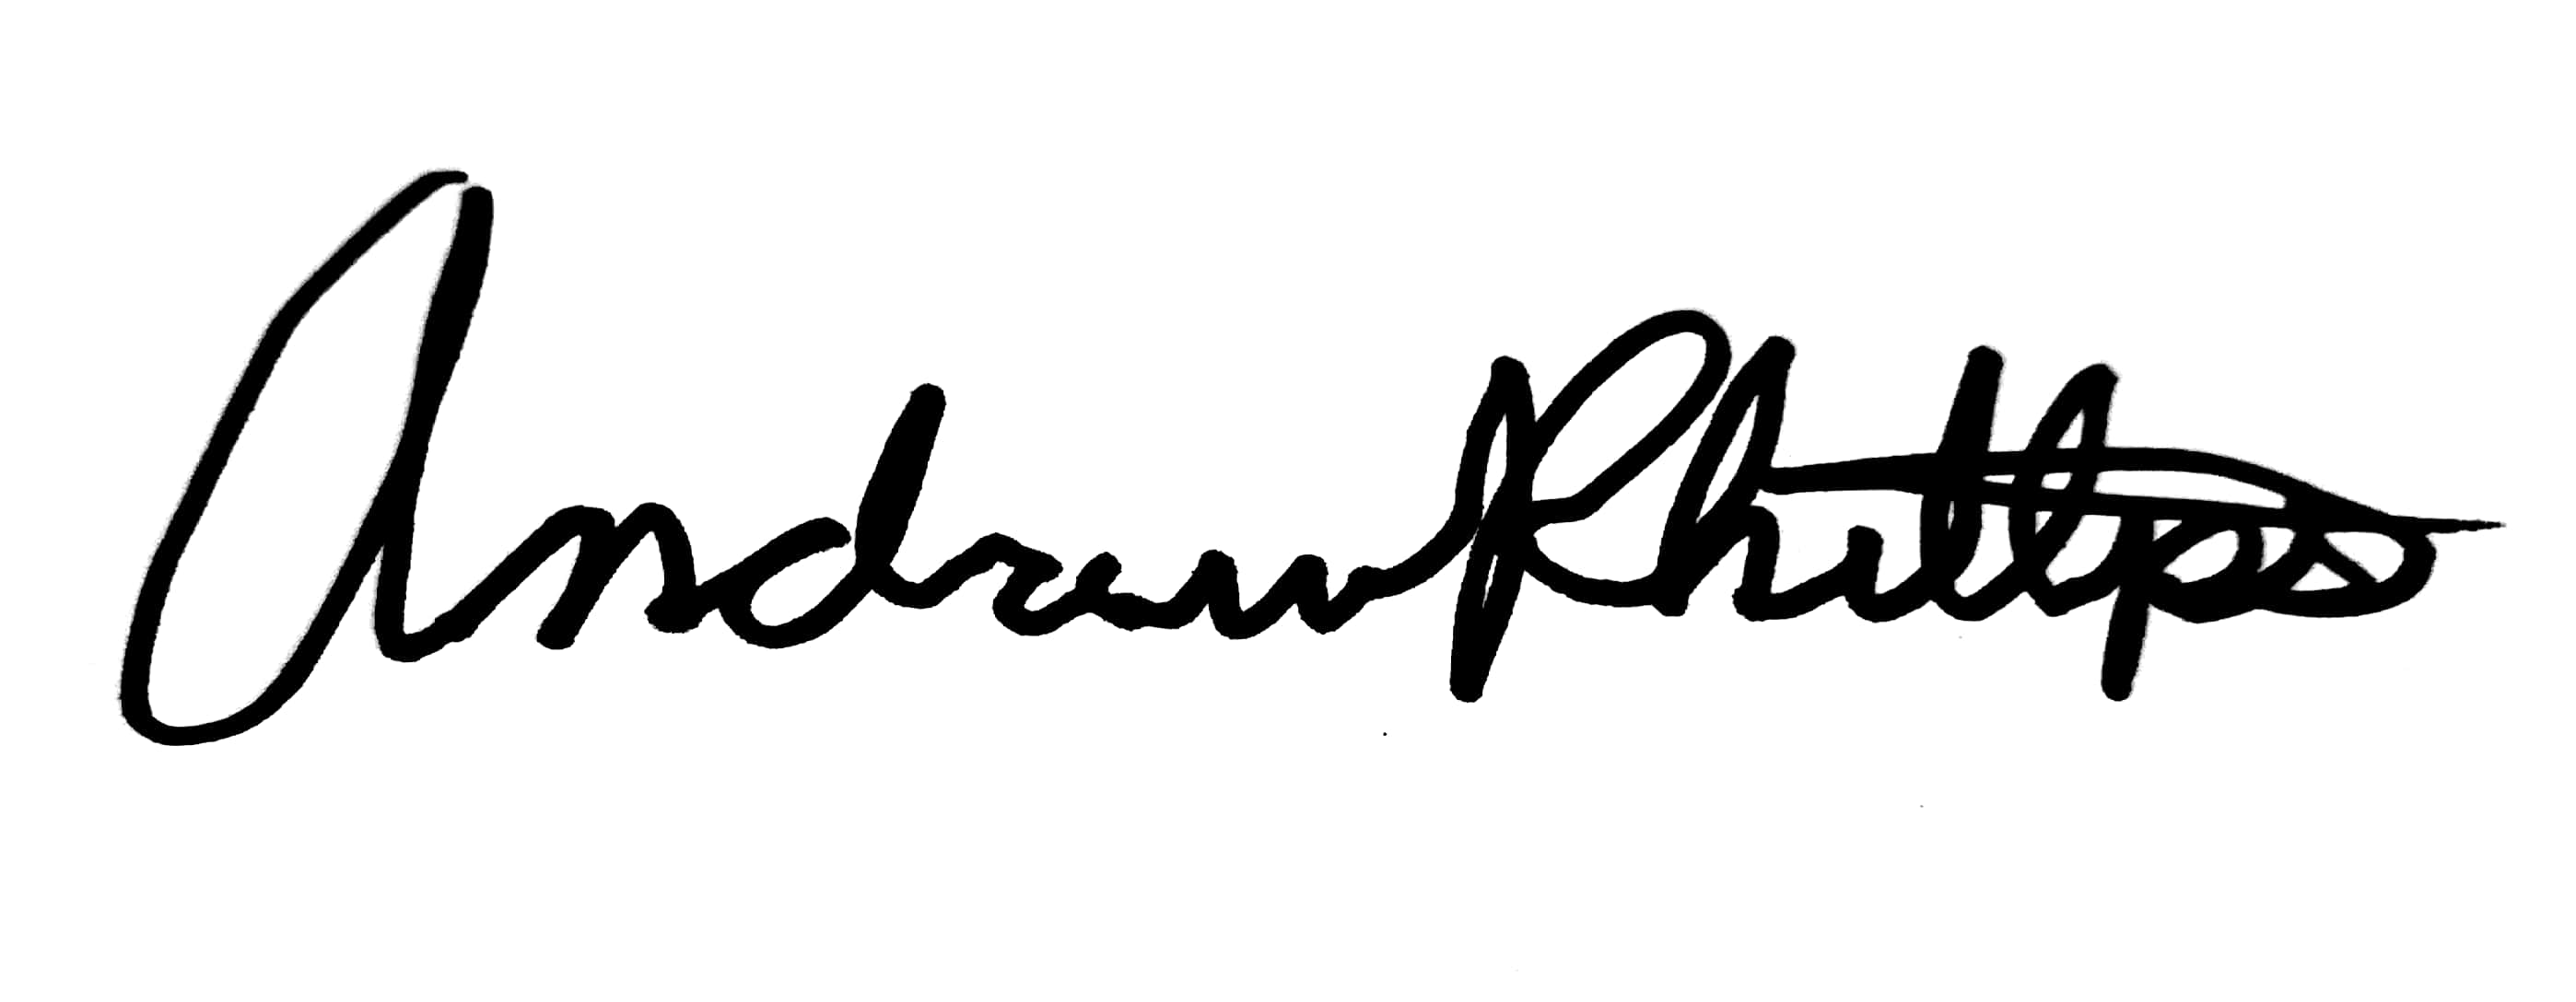 Andrew Phillips